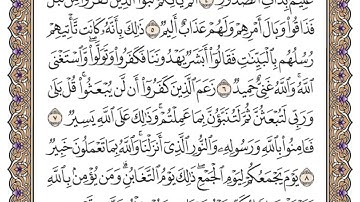 عَلِيمٌۢ بِذَاتِ ٱلصُّدُورِ ٤ أَلَمْ يَأْتِكُمْ نَبَؤُا۟ ٱلَّذِينَ كَفَرُوا۟ مِن قَبْلُ
فَذَاقُوا۟ وَبَالَ أَمْرِهِمْ وَلَهُمْ عَذَابٌ أَلِيمٌ ٥ ذَٰلِكَ بِأَنَّهُۥ كَانَت تَّأْتِيهِمْ
رُسُلُهُم بِٱلْبَيِّنَٰتِ فَقَالُوٓا۟ أَبَشَرٌ يَهْدُونَنَا فَكَفَرُوا۟ وَتَوَلَّوا۟ وَّٱسْتَغْنَى
ٱللَّهُ وَٱللَّهُ غَنِىٌّ حَمِيدٌ ٦ زَعَمَ ٱلَّذِينَ كَفَرُوٓا۟ أَن لَّن يُبْعَثُوا۟ قُلْ بَلَىٰ
وَرَبِّى لَتُبْعَثُنَّ ثُمَّ لَتُنَبَّؤُنَّ بِمَا عَمِلْتُمْ وَذَٰلِكَ عَلَى ٱللَّهِ يَسِيرٌ ٧
فَـَٔامِنُوا۟ بِٱللَّهِ وَرَسُولِهِۦ وَٱلنُّورِ ٱلَّذِىٓ أَنزَلْنَا وَٱللَّهُ بِمَا تَعْمَلُونَ خَبِيرٌ
٨ يَوْمَ يَجْمَعُكُمْ لِيَوْمِ ٱلْجَمْعِ ذَٰلِكَ يَوْمُ ٱلتَّغَابُنِ وَمَن يُؤْمِنۢ بِٱللَّهِ